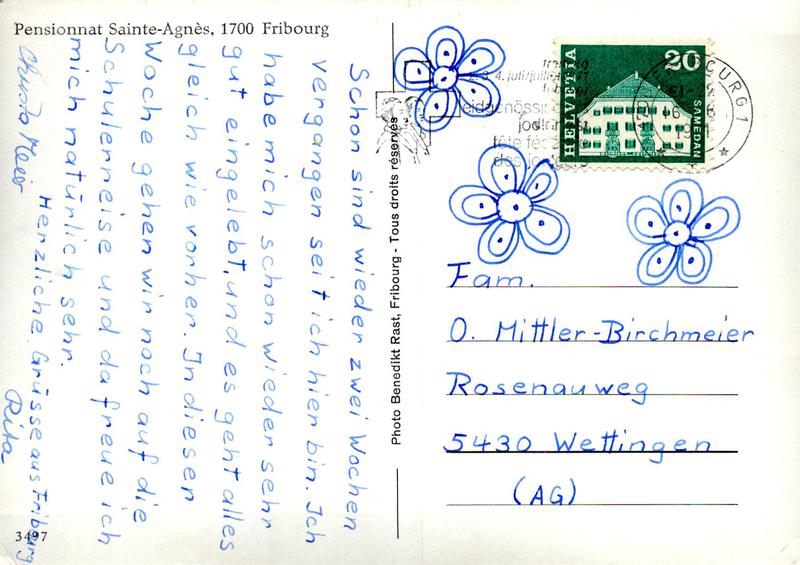 Pensionnat Sainte-Agnès, 1700 Fribourg
Schon sind wieder zwei Wochen
vergangen seit ich hier bin. Ich
habe mich schon wieder sehr
gut eingelebt, und es geht alles
gleich wie vorher. In diesen
Woche gehen wir noch auf die
Schulenreise und da freue ich
mich natürlich sehr.
Herzliche Grüsse aus Fribourg
Rita
Meier
3497
Photo Benedikt Rast, Fribourg - Tous droits réservés
2. 3. 4. juli/juillet
eidgenössisc
jodler
fête féd
des jo
HELVETIA
20
SAMEDAN
CURG 1
Fam.
O. Mittler-Birchmeier
Rosenauweg
5430 Wettingen
(AG)